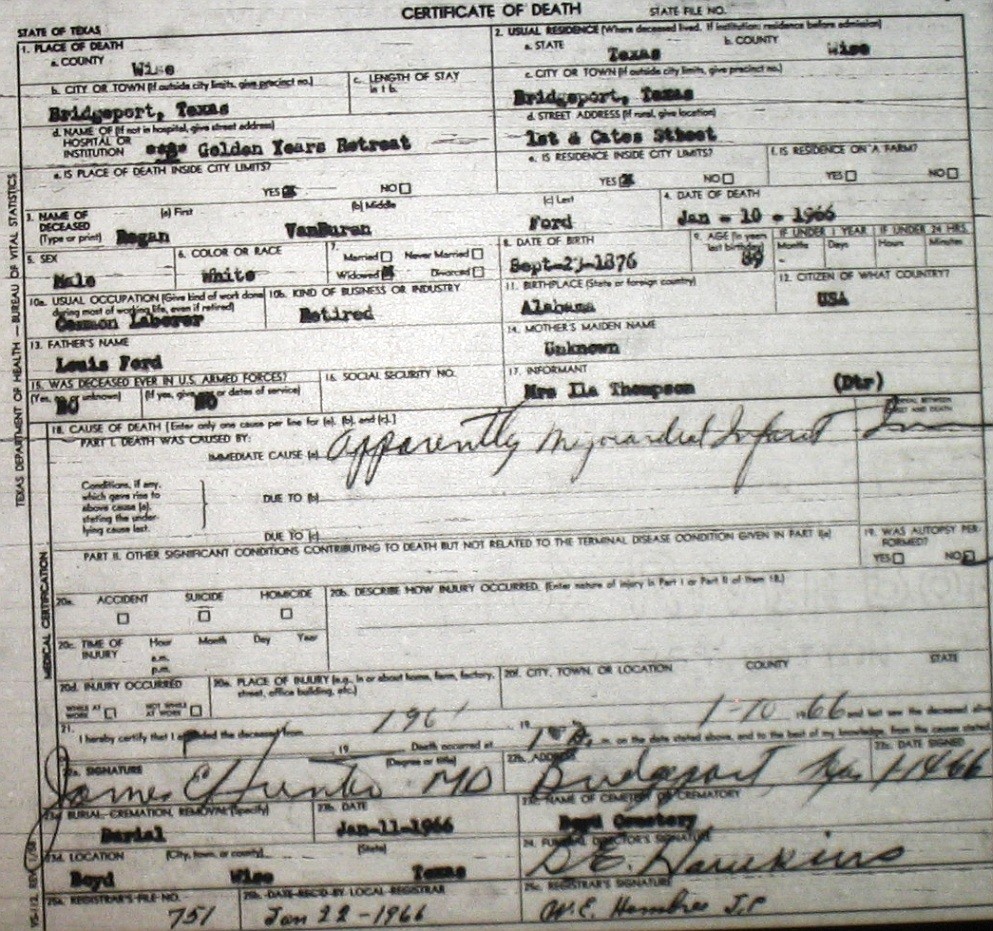 CERTIFICATE OF DEATH STATE FILE NO.
STATE OF TEXAS
1. PLACE OF DEATH
a. COUNTY Wise
2. USUAL RESIDENCE (Where deceased lived. If institution: residence before admission)
a. STATE Texas b. COUNTY Wise
b. CITY OR TOWN (If outside city limits, give precinct no.)
Bridgeport, Texas
c. LENGTH OF STAY in 1 b.
c. CITY OR TOWN (If outside city limits, give precinct no.)
Bridgeport, Texas
d. NAME OF (If not in hospital, give street address)
HOSPITAL OR
INSTITUTION Golden Years Retreat
d. STREET ADDRESS (If rural, give location)
1st & Cates Street
e. IS PLACE OF DEATH INSIDE CITY LIMITS?
YES NO
e. IS RESIDENCE INSIDE CITY LIMITS?
YES NO
f. IS RESIDENCE ON A FARM?
YES NO
3. NAME OF DECEASED (Type or print)
(a) First (b) Middle (c) Last
VanBuran Ford
4. DATE OF DEATH
Jan - 10 - 1966
5. SEX
Male
6. COLOR OR RACE
White
7. Married Never Married
Widowed Divorced
8. DATE OF BIRTH
9. AGE (In years last birthday)
89
IF UNDER 1 YEAR
Months Days
IF UNDER 24 HRS.
Hours Minutes
10a. USUAL OCCUPATION (Give kind of work done during most of working life, even if retired)
Common Laborer
10b. KIND OF BUSINESS OR INDUSTRY
Retired
11. BIRTHPLACE (State or foreign country)
Alabama
12. CITIZEN OF WHAT COUNTRY?
USA
13. FATHER'S NAME
Louis Ford
14. MOTHER'S MAIDEN NAME
Unknown
15. WAS DECEASED EVER IN U.S. ARMED FORCES?
(Yes, no, or unknown) (If yes, give war or dates of service)
NO NO
16. SOCIAL SECURITY NO.
17. INFORMANT
Mrs Ila Thompson (Dtr)
18. CAUSE OF DEATH [Enter only one cause per line for (a), (b), and (c).]
PART I. DEATH WAS CAUSED BY:
IMMEDIATE CAUSE (a) Apparently Myocardial Infarct
Conditions, if any, which gave rise to above cause (a), stating the underlying cause last.
DUE TO (b)
DUE TO (c)
PART II. OTHER SIGNIFICANT CONDITIONS CONTRIBUTING TO DEATH BUT NOT RELATED TO THE TERMINAL DISEASE CONDITION GIVEN IN PART I(a)
19. WAS AUTOPSY PERFORMED?
YES NO
20a. ACCIDENT SUICIDE HOMICIDE
20b. DESCRIBE HOW INJURY OCCURRED. (Enter nature of injury in Part I or Part II of Item 18.)
20c. TIME OF INJURY Hour Month Day Year
a.m.
p.m.
20d. INJURY OCCURRED
WHILE AT WORK NOT WHILE AT WORK
20e. PLACE OF INJURY (e.g., in or about home, farm, factory, street, office building, etc.)
20f. CITY, TOWN, OR LOCATION COUNTY STATE
21. I hereby certify that I attended the deceased from 196 , 19 1-10 1966 and last saw the deceased alive
19 Death occurred at m. on the date stated above, and to the best of my knowledge, from the causes stated
22a. SIGNATURE (Degree or title)
James E Hunter MD
22b. ADDRESS
Bridgeport
22c. DATE SIGNED
23a. BURIAL, CREMATION, REMOVAL (Specify)
Burial
23b. DATE
Jan-11-1966
23c. NAME OF CEMETERY OR CREMATORY
Boyd Cemetery
23d. LOCATION (City, town, or county) (State)
Boyd Wise Texas
24. FUNERAL DIRECTOR'S SIGNATURE
D.E. Hawkins
25a. REGISTRAR'S FILE NO.
751
25b. DATE REC'D BY LOCAL REGISTRAR
Jan 22-1966
25c. REGISTRAR'S SIGNATURE
W.E. Hembree J.P
TEXAS DEPARTMENT OF HEALTH — BUREAU OF VITAL STATISTICS
MEDICAL CERTIFICATION